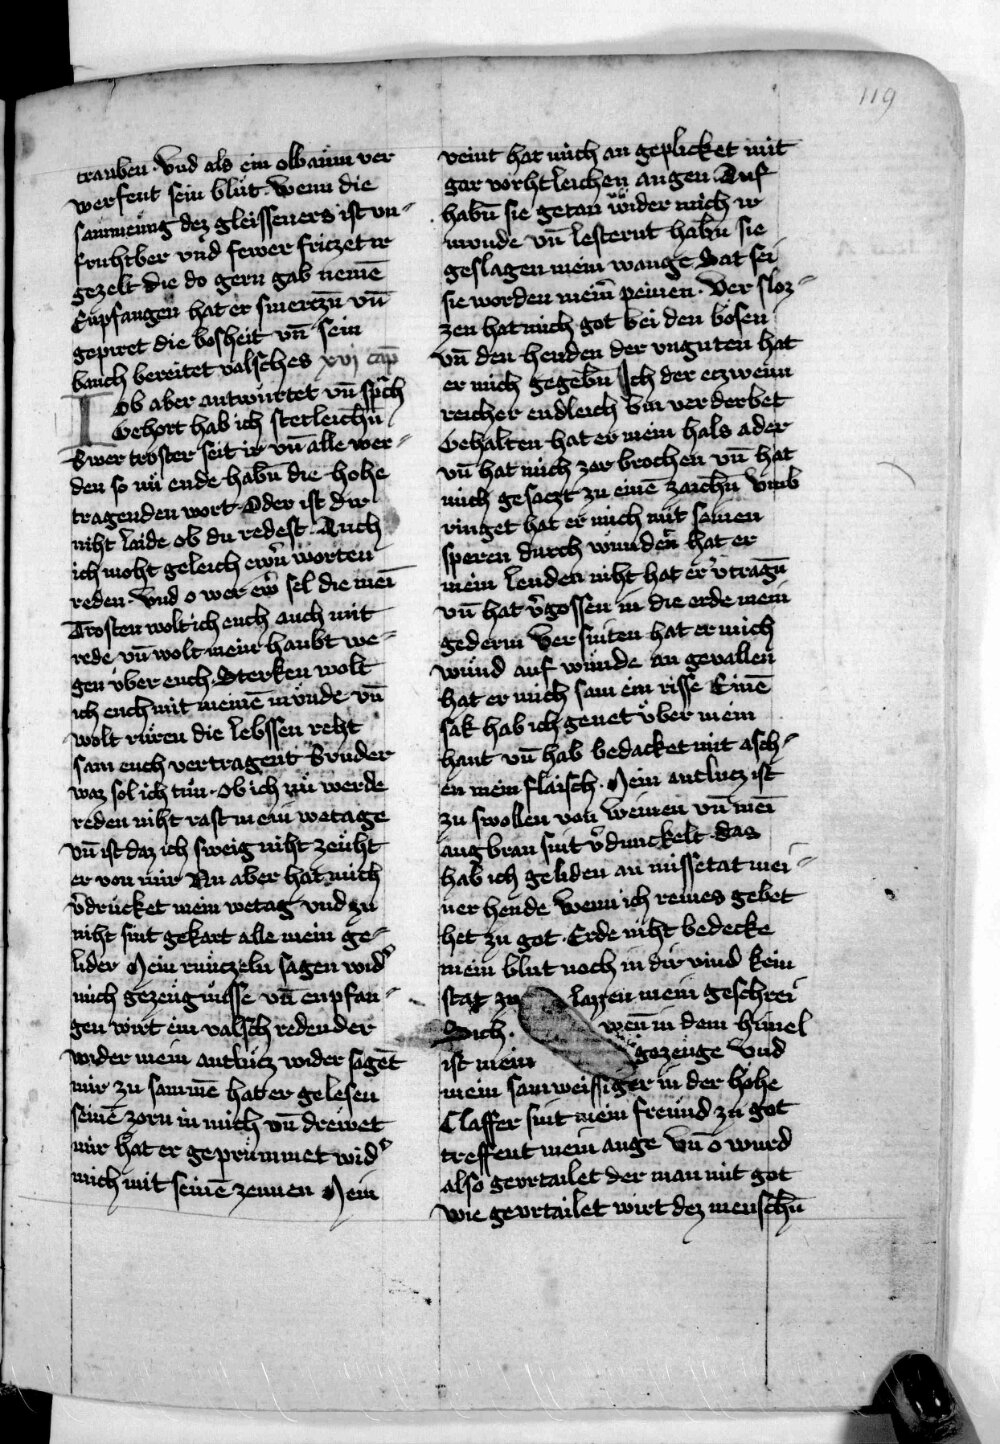 119
trauben · Vnd als ein olbaum ver
werfent sein blüt Wenn die
sammenüng dez gleisseners ist vn-
fruhtber vnd fewer frizzet ir
gezelt die do gern gab nemē
Enpfangen hat er smerczn vn̄
gepiret die bosheit vn̄ sein
bauch bereitet valsches xvi cap̄
Iob aber antwürtet vn̄ sp̄ch
Gehort hab ich stetleichn̄
Ewer troster seit ir vn̄ alle wer-
den so nu ende habn̄ die hohe
tragenden wort · Oder ist dir
niht laide ob du redest · Auch
ich moht geleich ewrn̄ worten
reden · Vnd o wer ewr̄ sel die mei
Trosten wolt ich euch auch mit
rede vn̄ wolt mein haubt we-
gen vber euch · Sterken wolt
ich euch mit meinē münde vn̄
wolt rüren die lebssen reht
sam euch vertragent Bruder
waz sol ich tün · Ob ich nü werde
reden niht rast mein wetage
vn̄ ist daz ich sweig niht zeuht
er von mir Nu aber hat mich
v̄drücket mein wetag vnd zu
niht sint gekart alle mein ge-
lider Mein runczeln sagen wid̄
mich gezeugnüsse vn̄ enpfan-
gen wirt ein valsch redender
wider mein antlücz wider sagēt
mir zu sammē hat er gelesen
seinē zorn in mich vn̄ drewet
mir hat er geprümmet wid̄
mich mit seinē zennen Mein
veint hat mich an geplicket mit
gar vorhtleichen augen Auf
habn̄ sie getan wider mich ir
munde vn̄ lesternt habn̄ sie
geslagen mein wange Sat sei
sie worden meinn̄ peinen · Ver sloz-
zen hat mich got bei den bösen
vn̄ den henden der vnguten hat
er mich gegebn̄ Ich der etzwenn
reicher endleich bin verderbet
Gehalten hat er mein hals ader
vn̄ hat mich zer brochen vn̄ hat
mich gesaczt zu einē zaichn̄ Vmb
ringet hat er mich mit seinen
speren durch wunden hat er
mein lenden niht hat er v̄tragn̄
vn̄ hat v̄gossen in die erde mein
gederm Ver sniten hat er mich
wünd auf wünde an gevallen
hat er mich sam ein risse Einē
sak hab ich genet vber mein
haut vn̄ hab bedacket mit asch-
en mein flaisch · Mein antlucz ist
zu swollen von weinen vn̄ mei
augbran sint v̄dunckelt das
hab ich geliden an missetat mei-
ner hende Wenn ich reines gebet
het zu got · Erde niht bedecke
mein blut noch in dir vind kein
stat zu lazzen mein geschrei
Sich · wen̄ in dem himel
ist mein gezeuge Vnd
mein sam weissiger in der höhe
Claffer sint mein freund zu got
treffent mein auge Vn̄ o wurd
also gevrtailet der man mit got
wie gevrtailet wirt dez menschn̄